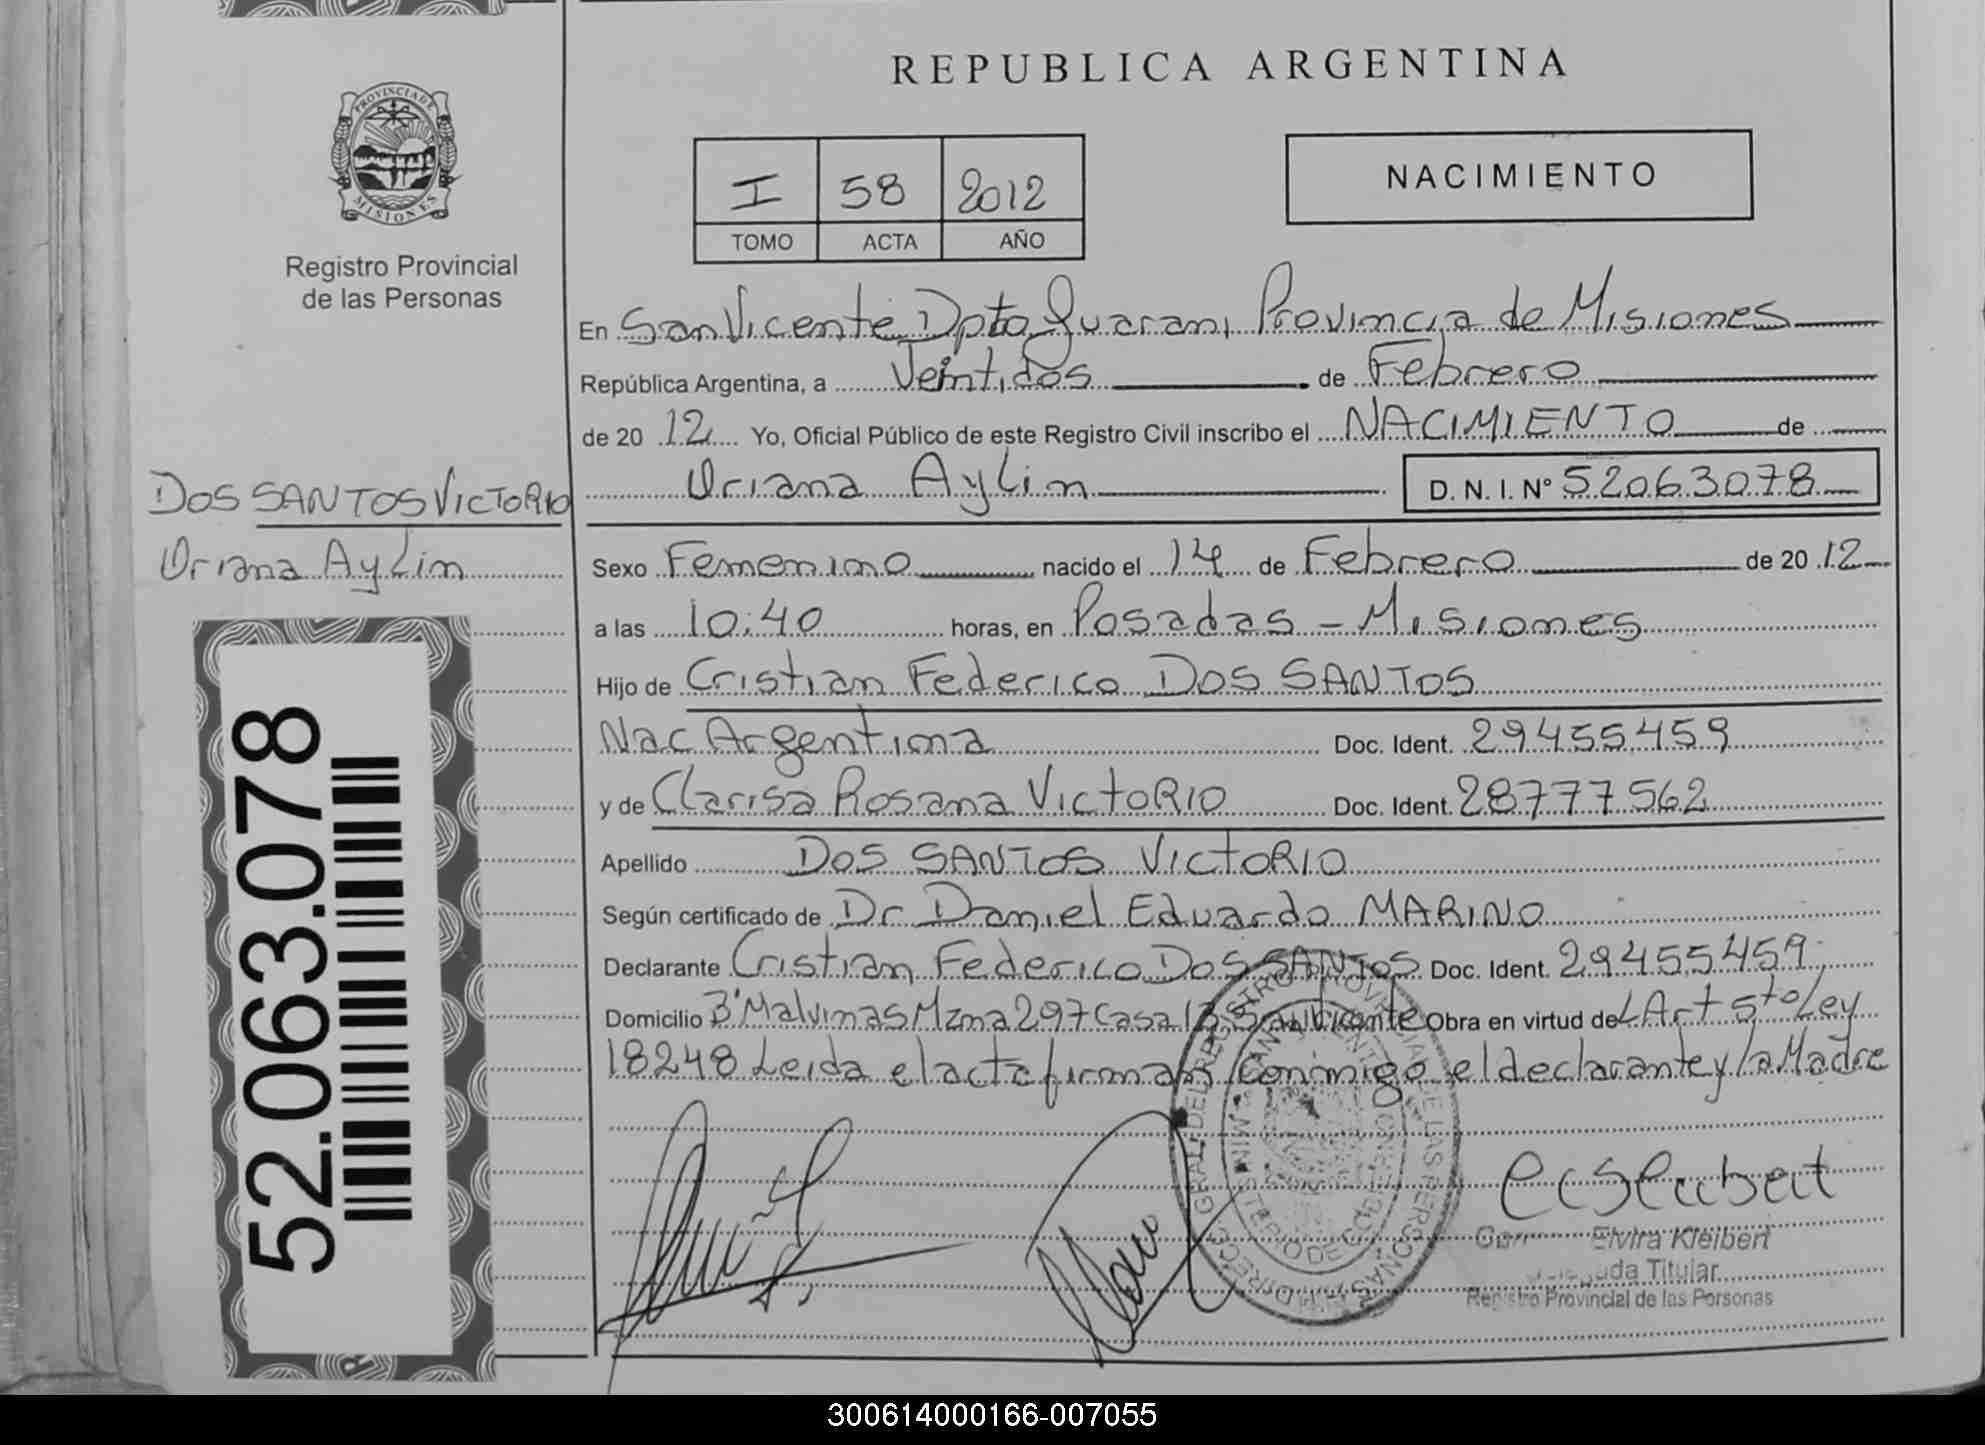 REPUBLICA ARGENTINA
PROVINCIA DE MISIONES
Registro Provincial
de las Personas
I 58 2012
TOMO ACTA AÑO
NACIMIENTO
En San Vicente Dpto Guarani Provincia de Misiones
República Argentina, a Veintidos de Febrero
de 2012 Yo, Oficial Público de este Registro Civil inscribo el NACIMIENTO de
Oriana Aylin D. N. I. N° 52063078
DOS SANTOS VICTORIO
Oriana Aylin
Sexo Femenino nacido el 14 de Febrero de 2012
a las 10:40 horas, en Posadas - Misiones
Hijo de Cristian Federico DOS SANTOS
Nac Argentina Doc. Ident. 29455459
y de Clarisa Rosana VICTORIO Doc. Ident. 28777562
Apellido DOS SANTOS VICTORIO
Según certificado de Dr Daniel Eduardo MARINO
Declarante Cristian Federico DOS SANTOS Doc. Ident. 29455459
Domicilio B° Malvinas Mzna 297 Casa 13 San Vicente Obra en virtud de L Art 5to Ley
18248 Leida el acta firman conmigo el declarante y la Madre
52.063.078
Elvira Kleibert
Titular
Registro Provincial de las Personas
300614000166-007055